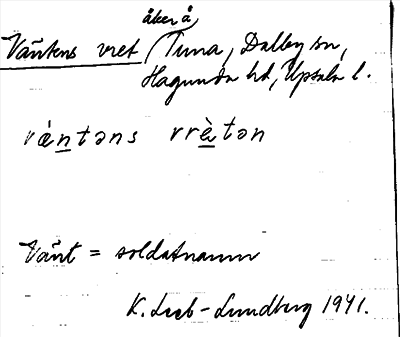 Väntens vret (åker å Tuna, Dalby sn,
Hagunda hd, Upsala l.
væ̀ntəns vrὲtən
Vänt = soldatnamn
K. Lieb-Lundberg 1941.